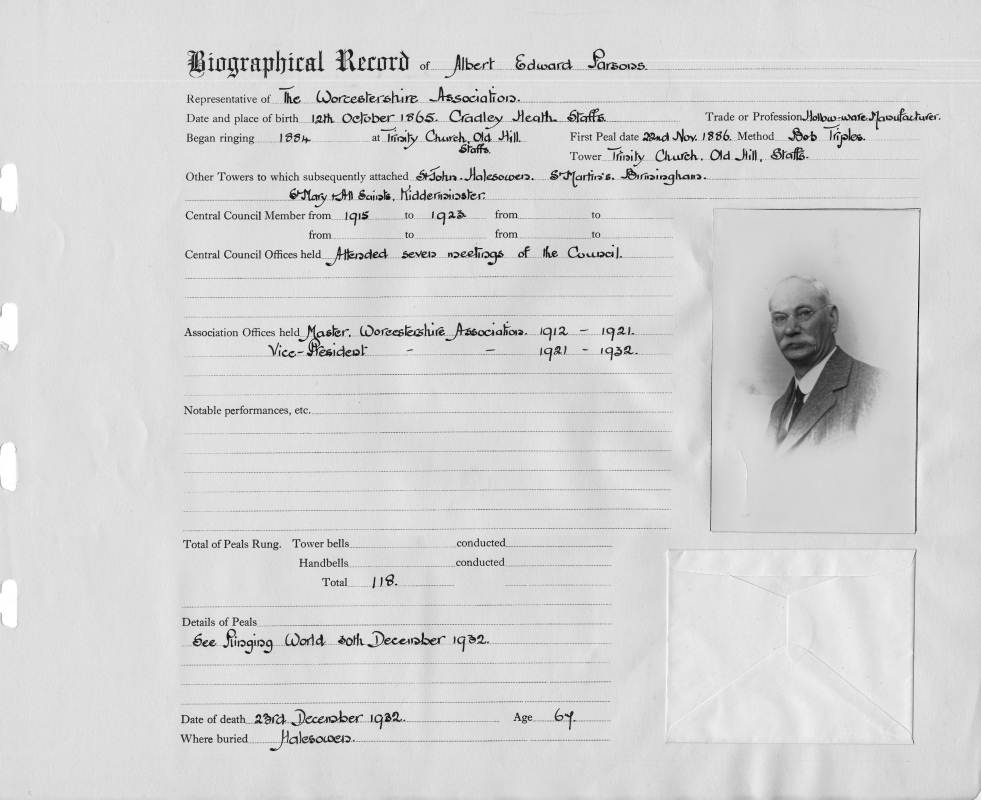 Biographical Record of Albert Edward Parsons.
Representative of The Worcestershire Association.
Date and place of birth 12th October 1865. Cradley Heath. Staffs. Trade or Profession Hollow-ware Manufacturer.
Began ringing 1884 at Trinity Church, Old Hill. Staffs. First Peal date 22nd Nov. 1886. Method Bob Triples.
Tower Trinity Church, Old Hill, Staffs.
Other Towers to which subsequently attached St John. Halesowen. St Martin's. Birmingham.
St Mary & All Saints, Kidderminster.
Central Council Member from 1915 to 1923 from to
from to from to
Central Council Offices held Attended seven meetings of the Council.
Association Offices held Master. Worcestershire Association. 1912 - 1921.
Vice-President - - 1921 - 1932.
Notable performances, etc.
Total of Peals Rung. Tower bells conducted
Handbells conducted
Total 118.
Details of Peals
See Ringing World 30th December 1932.
Date of death 23rd December 1932. Age 67.
Where buried Halesowen.